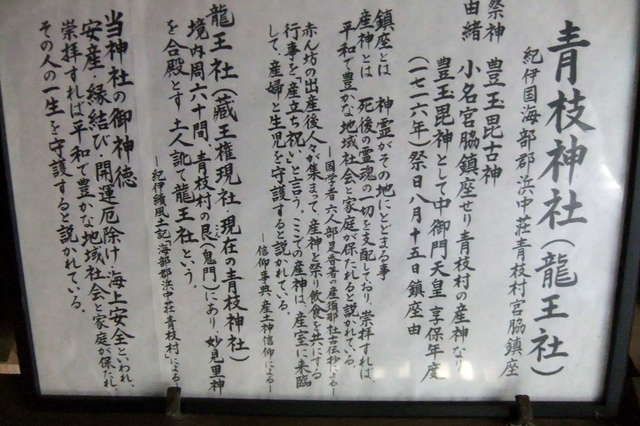 青枝神社(龍王社)
紀伊国海部郡浜中荘青枝村宮脇鎮座
祭神 豊玉毘古神
由緒 小名宮脇鎮座せり青枝村の産神なり
豊玉毘神として中御門天皇享保年度
(一七一六年)祭日八月十五日鎮座由
鎮座とは 神霊がその地にとどまる事
産神とは 死後の霊魂の一切を支配しており、崇拝すれば、
平和で豊かな地域社会と家庭が保たれると説かれている。
―国学者六人部是香著の産須那社古伝抄による―
赤ん坊の出産後人々が集まって、産神を祭り飲食を共にする
行事を「産立ち祝い」と言う。ここでの産神は、産室に来臨
して、産婦と生児を守護すると説かれている。
―信仰事典産土神信仰による―
龍王社(蔵王権現社 現在の青枝神社)
境内周六十間、青枝村の艮(鬼門)にあり、妙見里神
を合殿とす 土人訛て龍王社という。
―紀伊續風土記「海部郡浜中荘青枝村」による―
当神社の御神徳
安産・縁結び・開運厄除け・海上安全といわれ、
崇拝すれば平和で豊かな地域社会と家庭が保たれ、
その人の一生を守護すると説かれている。